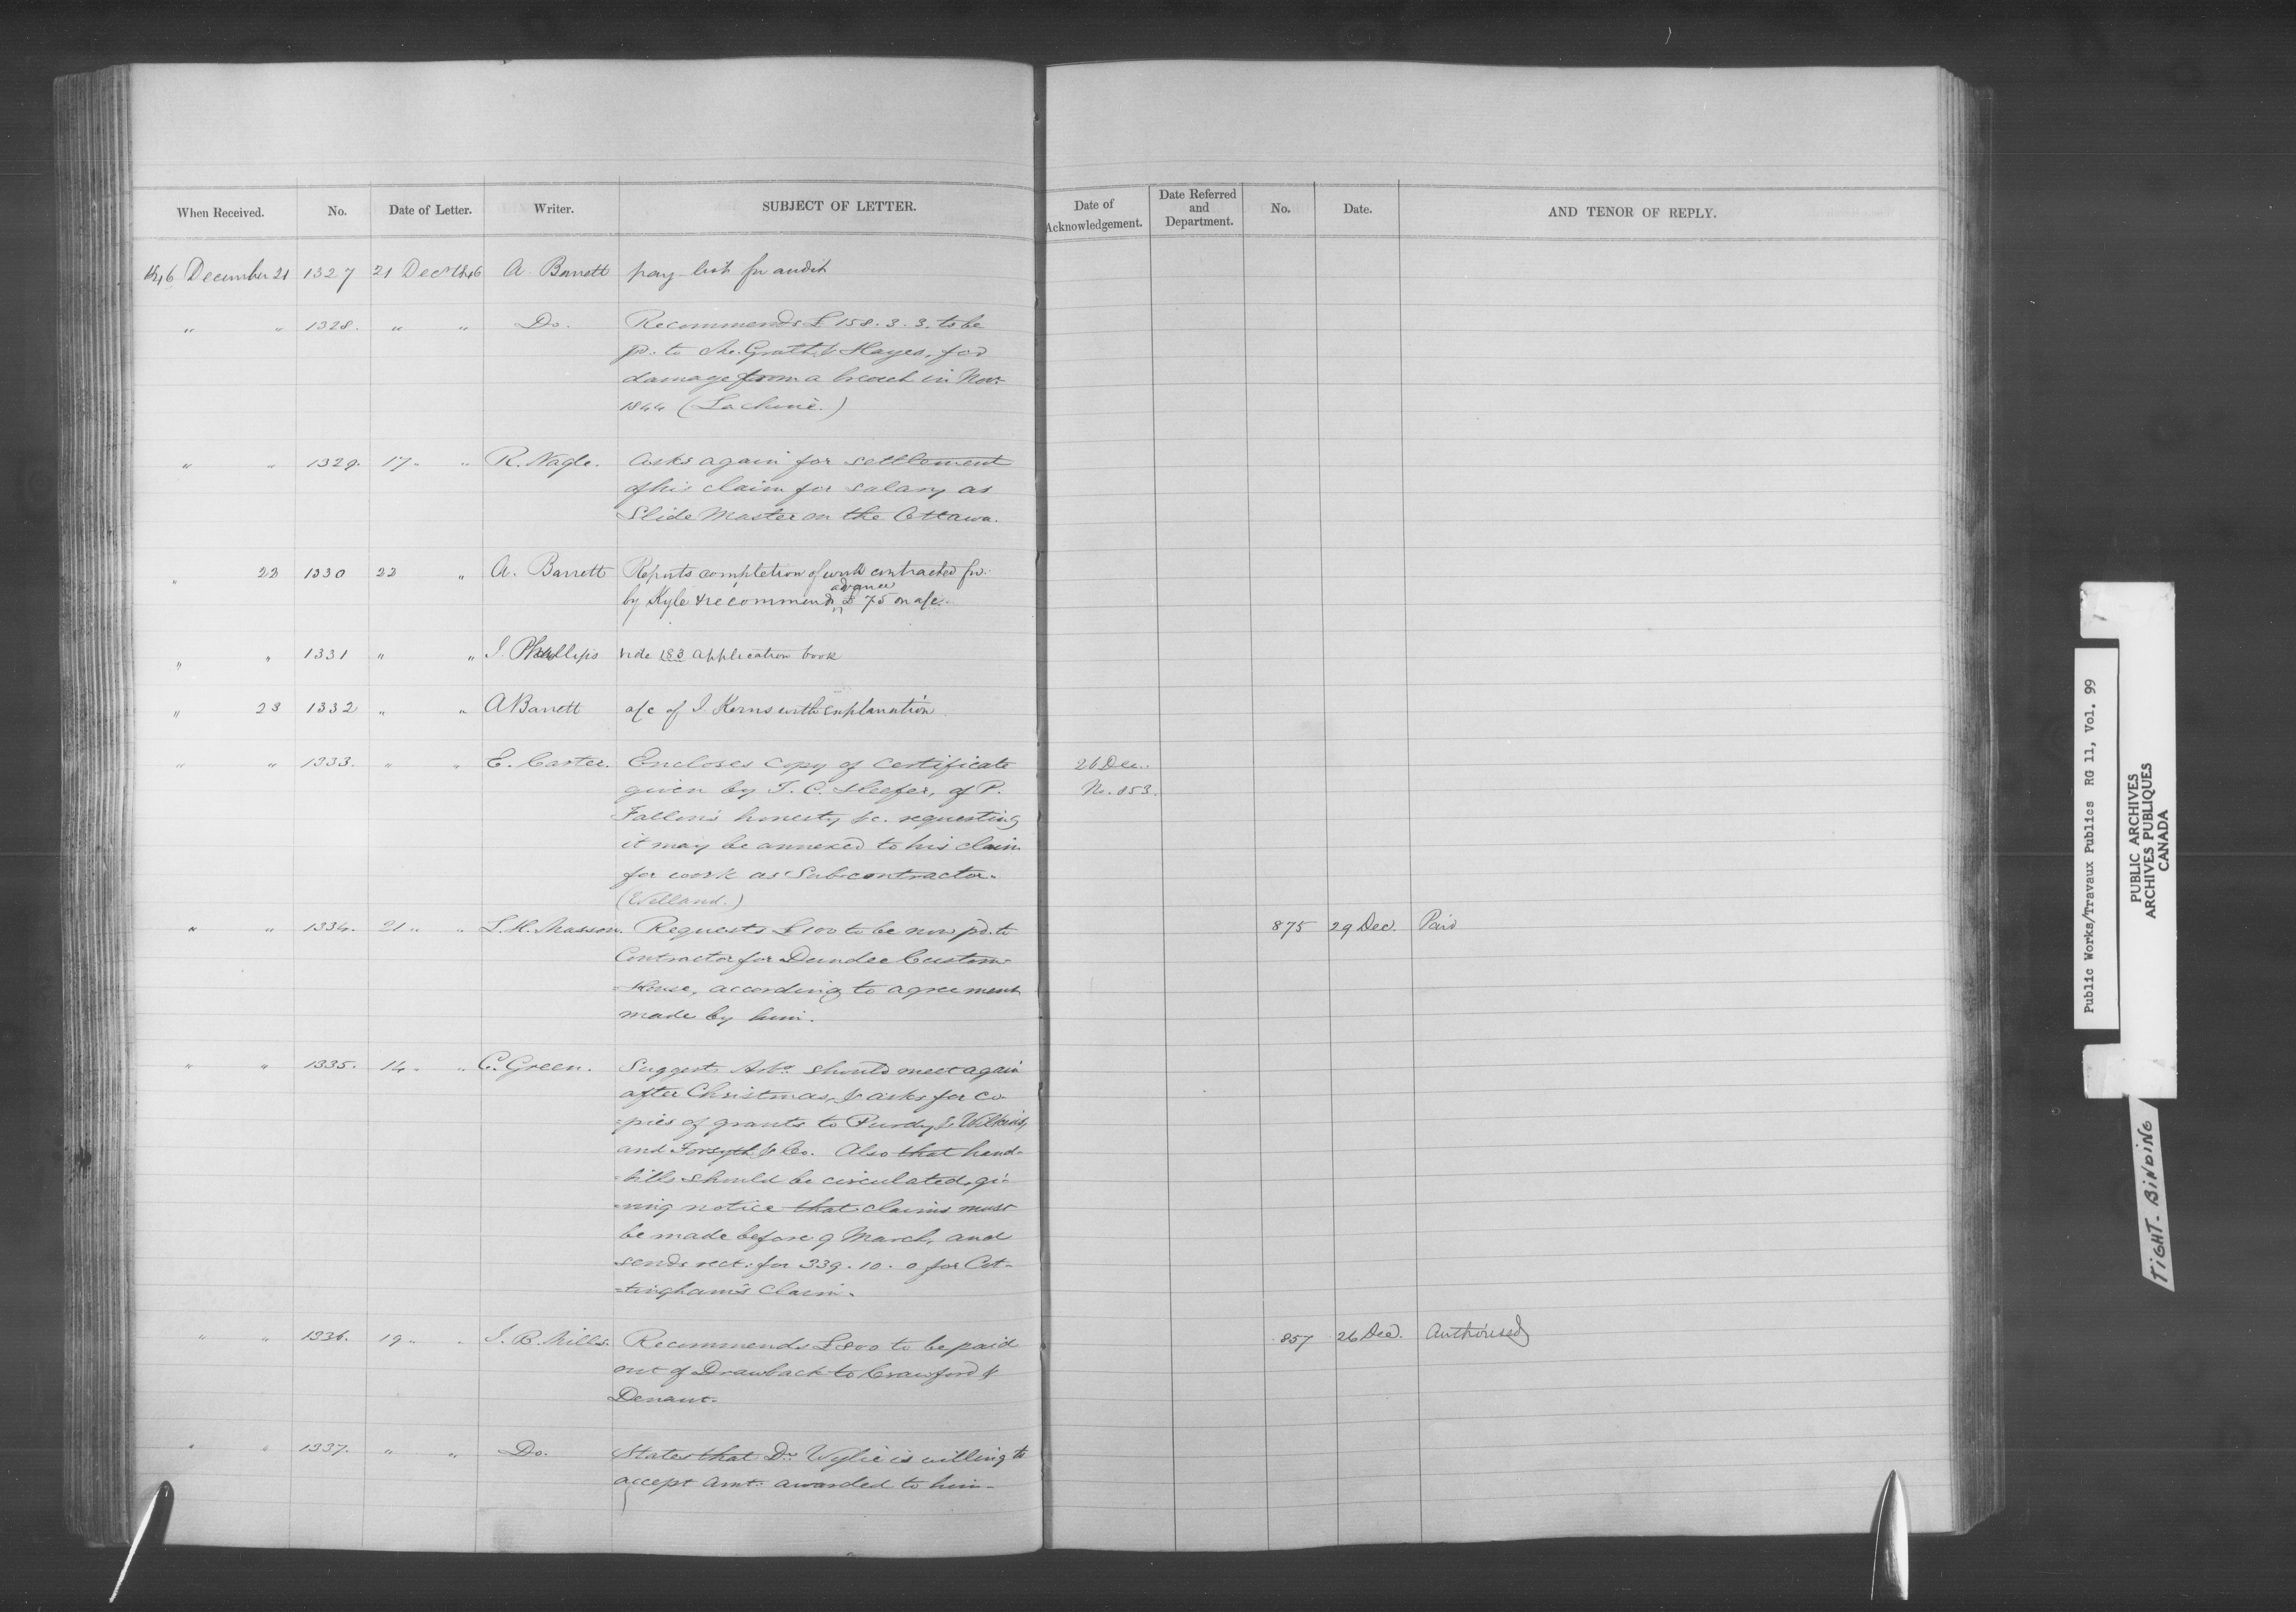 When Received. No. Date of Letter. Writer. SUBJECT OF LETTER. Date of Acknowledgement. Date Referred and Department. No. Date. AND TENOR OF REPLY.
1846 December 21 1327 21 Decr 1846 A. Barrett pay-list for audit
" " 1328. " " Do. Recommends £158.3.3. to be
pd. to McGrath & Hayes, for
damage from a breach in Novr
1844 (Lachine.)
" " 1329. 17. " R. Nagle. Asks again for settlement
of his claim for salary as
Slide Master on the Ottawa.
" 22 1330 22 " A. Barrett Reports completion of work contracted for
by Kyle & recommends advance £75 on a/c.
" " 1331 " " J. Phillips vide 183 application book
" 23 1332 " " A Barrett a/c of J. Kerns with explanation
" " 1333. " " E. Carter. Encloses copy of certificate 26 Dec.
given by T. C. Keefer, of P. No. 853.
Fallon's honesty &c. requesting
it may be annexed to his claim
for work as Subcontractor.
(Welland.)
" " 1334. 21 " " L. H. Masson. Requests £100 to be now pd. to 875 29 Dec. Paid
Contractor for Dundee Custom
House, according to agreement
made by him.
" " 1335. 14. " C. Green. Suggests Arbs. should meet again
after Christmas, & asks for co-
=pies of grants to Purdy & Wilkins,
and Forsyth & Co. Also that hand-
=bills should be circulated, gi-
=ving notice that claims must
be made before 9 March, and
sends rect. for 339.10.0 for Cot-
=tingham's Claim.
" " 1336. 19 " " J. B. Mills. Recommends £800 to be paid 857 26 Dec. Authorised
out of Drawback to Crawford &
Denaut.
" " 1337. " " Do. States that Dr. Wylie is willing to
accept amt. awarded to him.
Public Works/Travaux Publics RG 11, Vol. 99
PUBLIC ARCHIVES
ARCHIVES PUBLIQUES
CANADA
TIGHT-BINDING